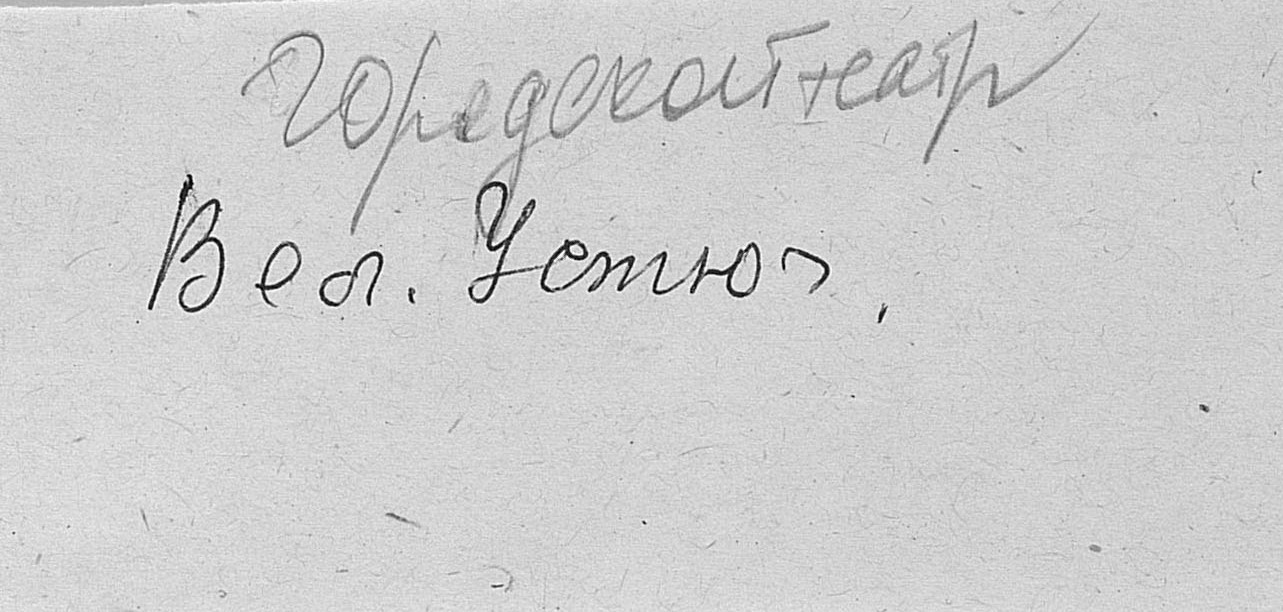 Городской театр
Вел. Устюг,